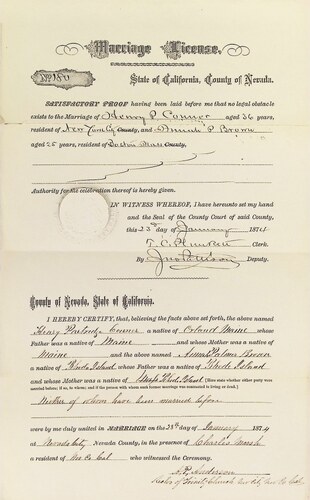 Marriage License.
No 180
State of California, County of Nevada.
SATISFACTORY PROOF having been laid before me that no legal obstacle
exists to the Marriage of Henry P. Connor aged 36 years,
resident of New York City County, and Annie P Brown
aged 25 years, resident of Boston Mass County,
Authority for the celebration thereof is hereby given.
IN WITNESS WHEREOF, I have hereunto set my hand
and the Seal of the County Court of said County,
this 23d day of January 1874
T. C. Plunkett Clerk.
By Jno Pattison Deputy.
County of Nevada, State of California.
I HEREBY CERTIFY, that, believing the facts above set forth, the above named
Henry Connor a native of Maine whose
Father was a native of Maine and whose Mother was a native of
Maine and the above named Anna Palmer Brown
a native of Rhode Island whose Father was a native of Rhode Island
and whose Mother was a native of Rhode Island
Neither of whom have been married before
were by me duly united in MARRIAGE on the day of January 1874
at Nevada City Nevada County, in the presence of Charles Marsh
a resident of Nev. Co. Cal who witnessed the Ceremony.
A.P. Anderson
Rector of Trinity Church